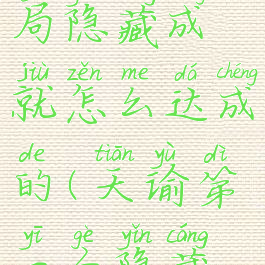 局隐藏成
jiù zěn me dá chéng
就怎么达成
de tiān yù dì
的(天谕第
yī gè yǐn cáng